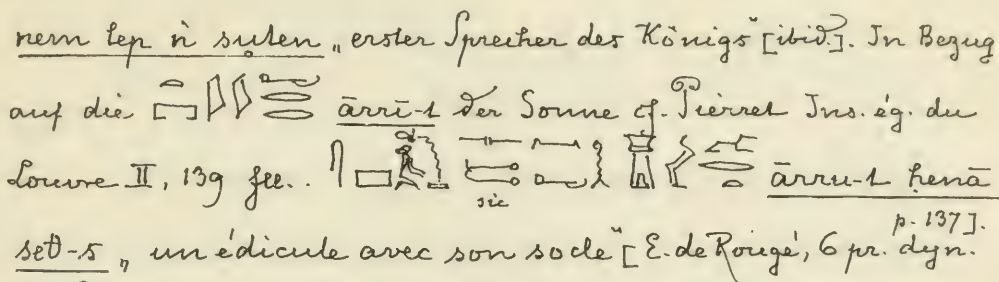 nem tep n suten „erster Sprecher des Königs" [ibid.]. In Bezug
auf die ārrī-t der Sonne cf. Pierret Ins. ég. du
Louvre II, 139 ff..
sic
ārru-t ḥenā
set-s „un édicule avec son socle" [E. de Rougé, 6 pr. dyn.
p. 137].